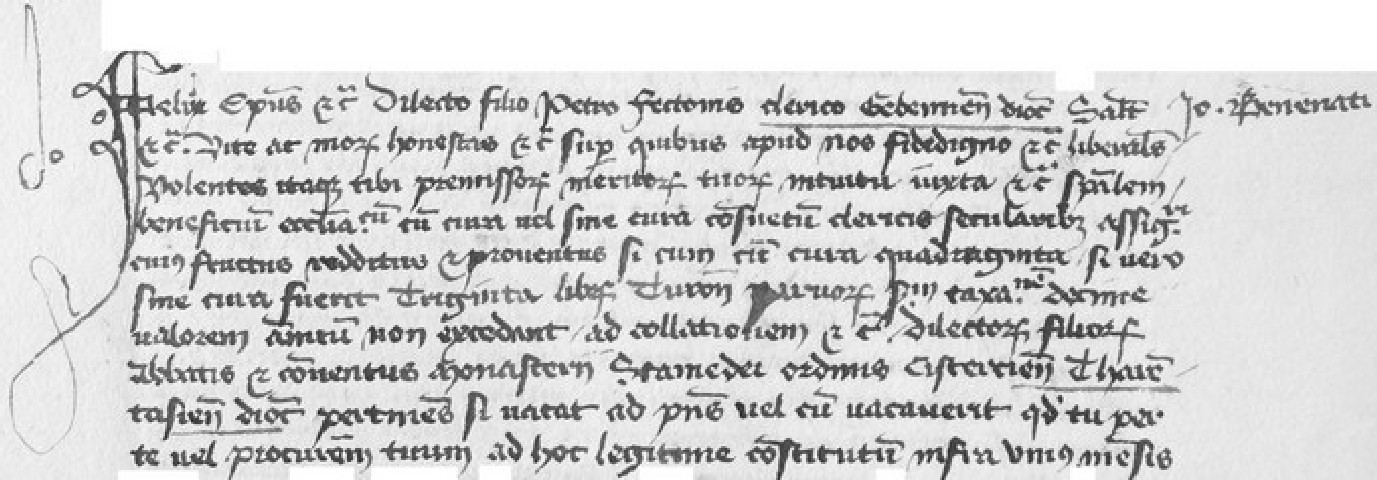 Felix Epūs ⁊c̄ Dilecto filio Petro fectoris clerico Gebennen̄ dioc̄ Salt̄ Jo. Benenati
⁊c̄. Vite ac moꝝ honestas ⁊c̄ suꝑ quibus apud nos fidedigno ⁊c̄ liberal̄s
Volentes itaqꝫ tibi premissoꝝ meritoꝝ tuoꝝ intuitu iuxta ⁊c̄ sp̄alem
beneficiū eccl̄ia.cū cū cura uel sine cura cōsuetū clericis secularibꝫ assiḡ.ri
cuiꝰ fructus redditus ⁊ prouentus si cum cū cura quadraginta si uero
sine cura fuerit Triginta libꝝ Turon̄ paruoꝝ s̄m taxa.nē decime
ualorem ān̄uū non excedant ad collationem ⁊ c̄ Dilectoꝝ filioꝝ
Abbatis ⁊ cōuentus Monasterij Stamedei ordinis Cistercien̄ Thare
tasien̄ dioc̄ pertinēs si uacat ad p̄ns uel cū uacauerit qd' tu per
te uel procur̄em tuum ad hoc legitime cōstitutū infra vniꝰ mēsis